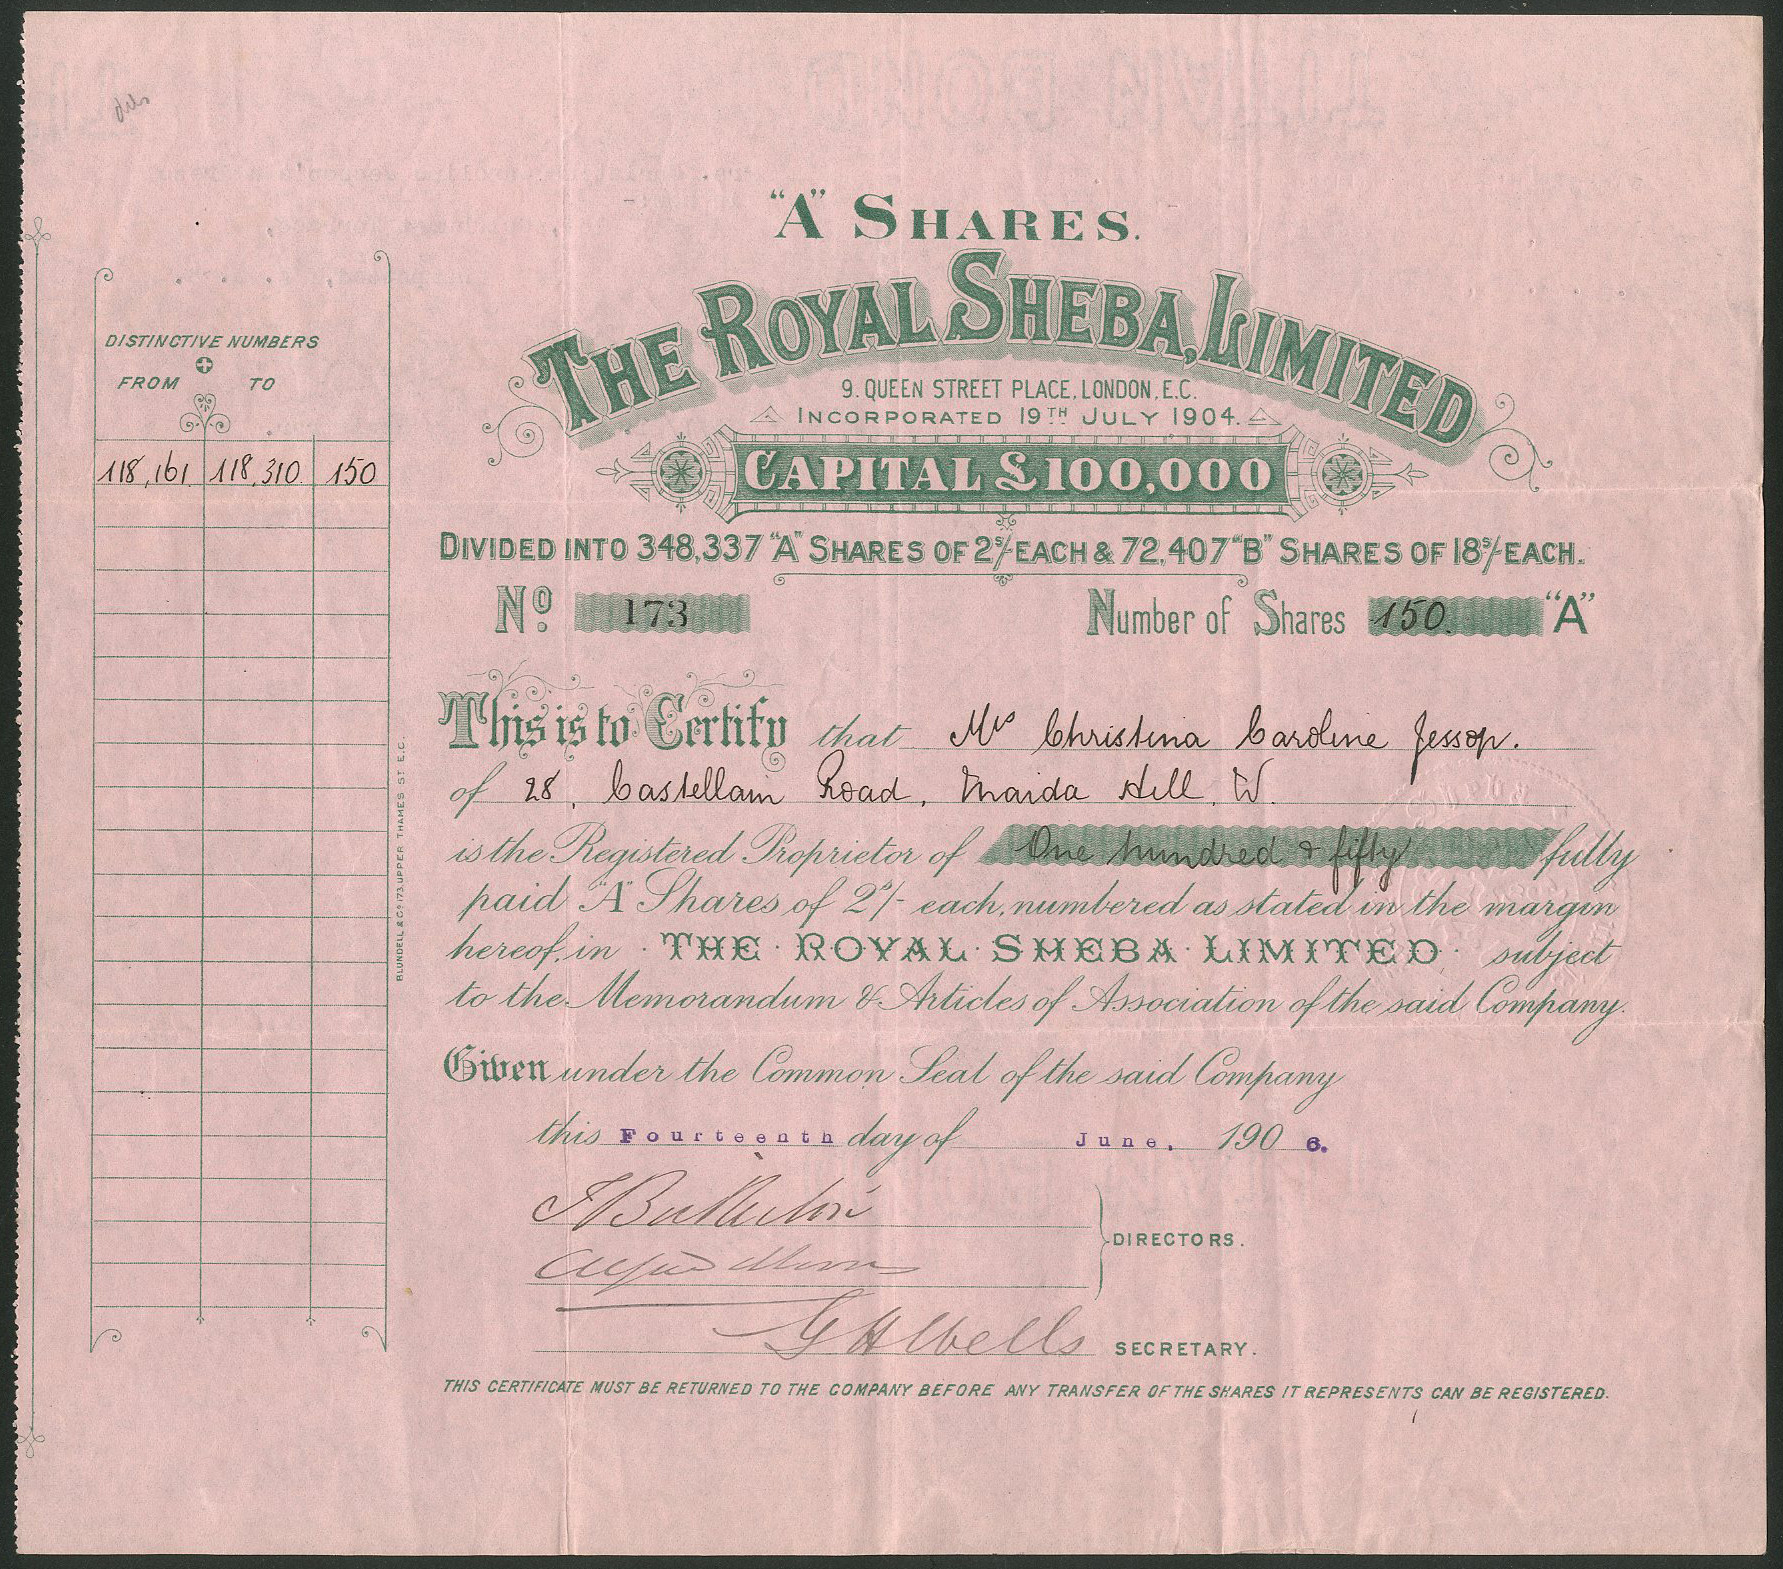 "A" SHARES.
THE ROYAL SHEBA, LIMITED
9. QUEEN STREET PLACE, LONDON, E.C.
INCORPORATED 19TH JULY 1904.
CAPITAL £100,000
DIVIDED INTO 348,337 "A" SHARES OF 2s/- EACH & 72,407 "B" SHARES OF 18s/- EACH.
No. 173 Number of Shares 150. "A"
DISTINCTIVE NUMBERS
FROM TO
118,161 118,310 150
This is to Certify that Mrs Christina Caroline Jessop.
of 28, Castellain Road, Maida Hill, W.
is the Registered Proprietor of One hundred & fifty fully
paid "A" Shares of 2s/- each, numbered as stated in the margin
hereof, in · THE · ROYAL · SHEBA · LIMITED · subject
to the Memorandum & Articles of Association of the said Company.
Given under the Common Seal of the said Company
this Fourteenth day of June, 1906.
DIRECTORS.
G H Wells SECRETARY.
THIS CERTIFICATE MUST BE RETURNED TO THE COMPANY BEFORE ANY TRANSFER OF THE SHARES IT REPRESENTS CAN BE REGISTERED.
BLUNDELL & Co 173, UPPER THAMES ST E.C.